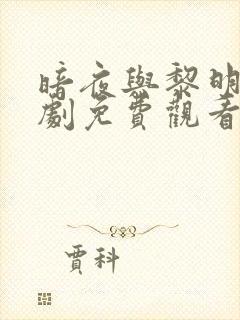 暗夜與黎明
劇免費觀看
賈科